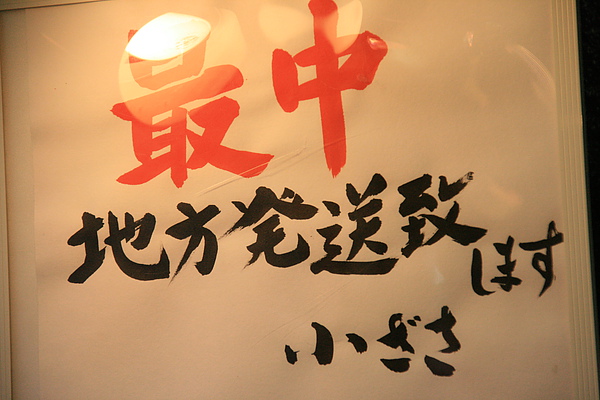 最中
地方発送致します
小ざさ